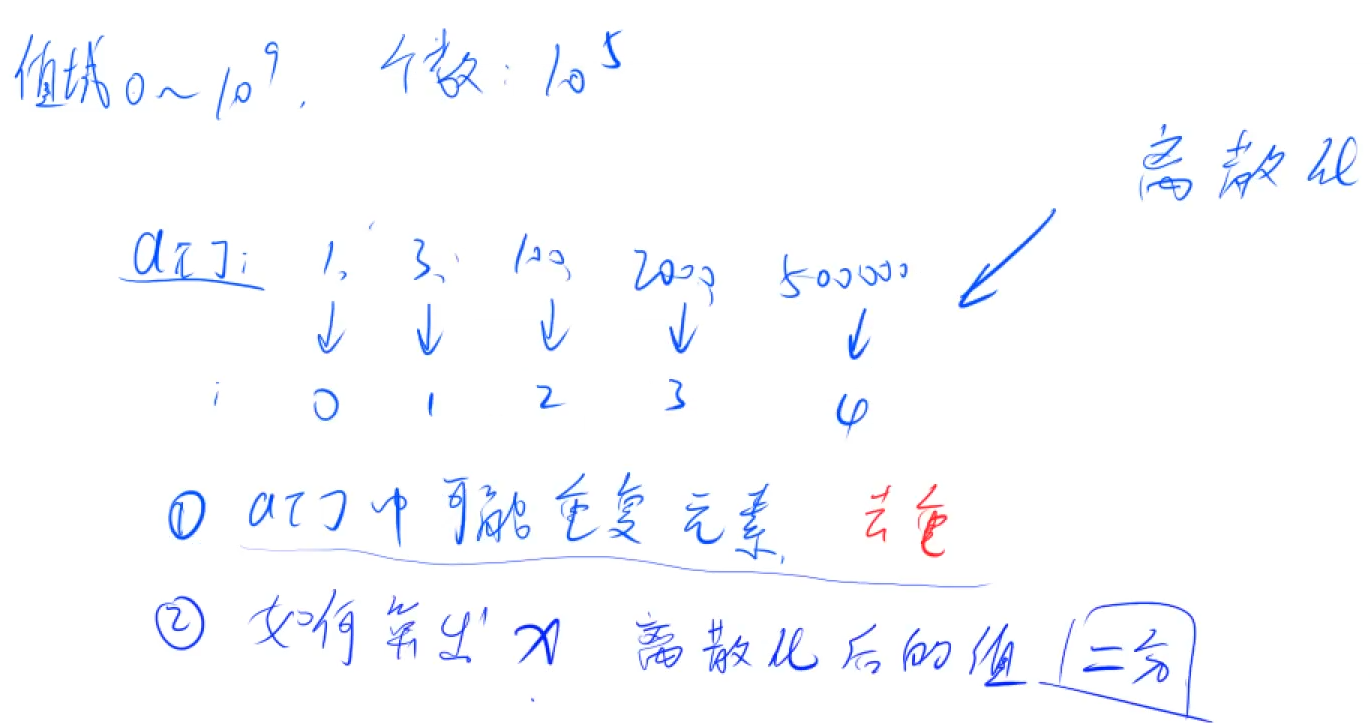 值域 0～10⁹. 个数: 10⁵
离散化
a[]: 1, 3, 100, 2000, 500000
0 1 2 3 4
① a[]中可能重复元素. 去重
② 如何算出 x 离散化后的值 二分